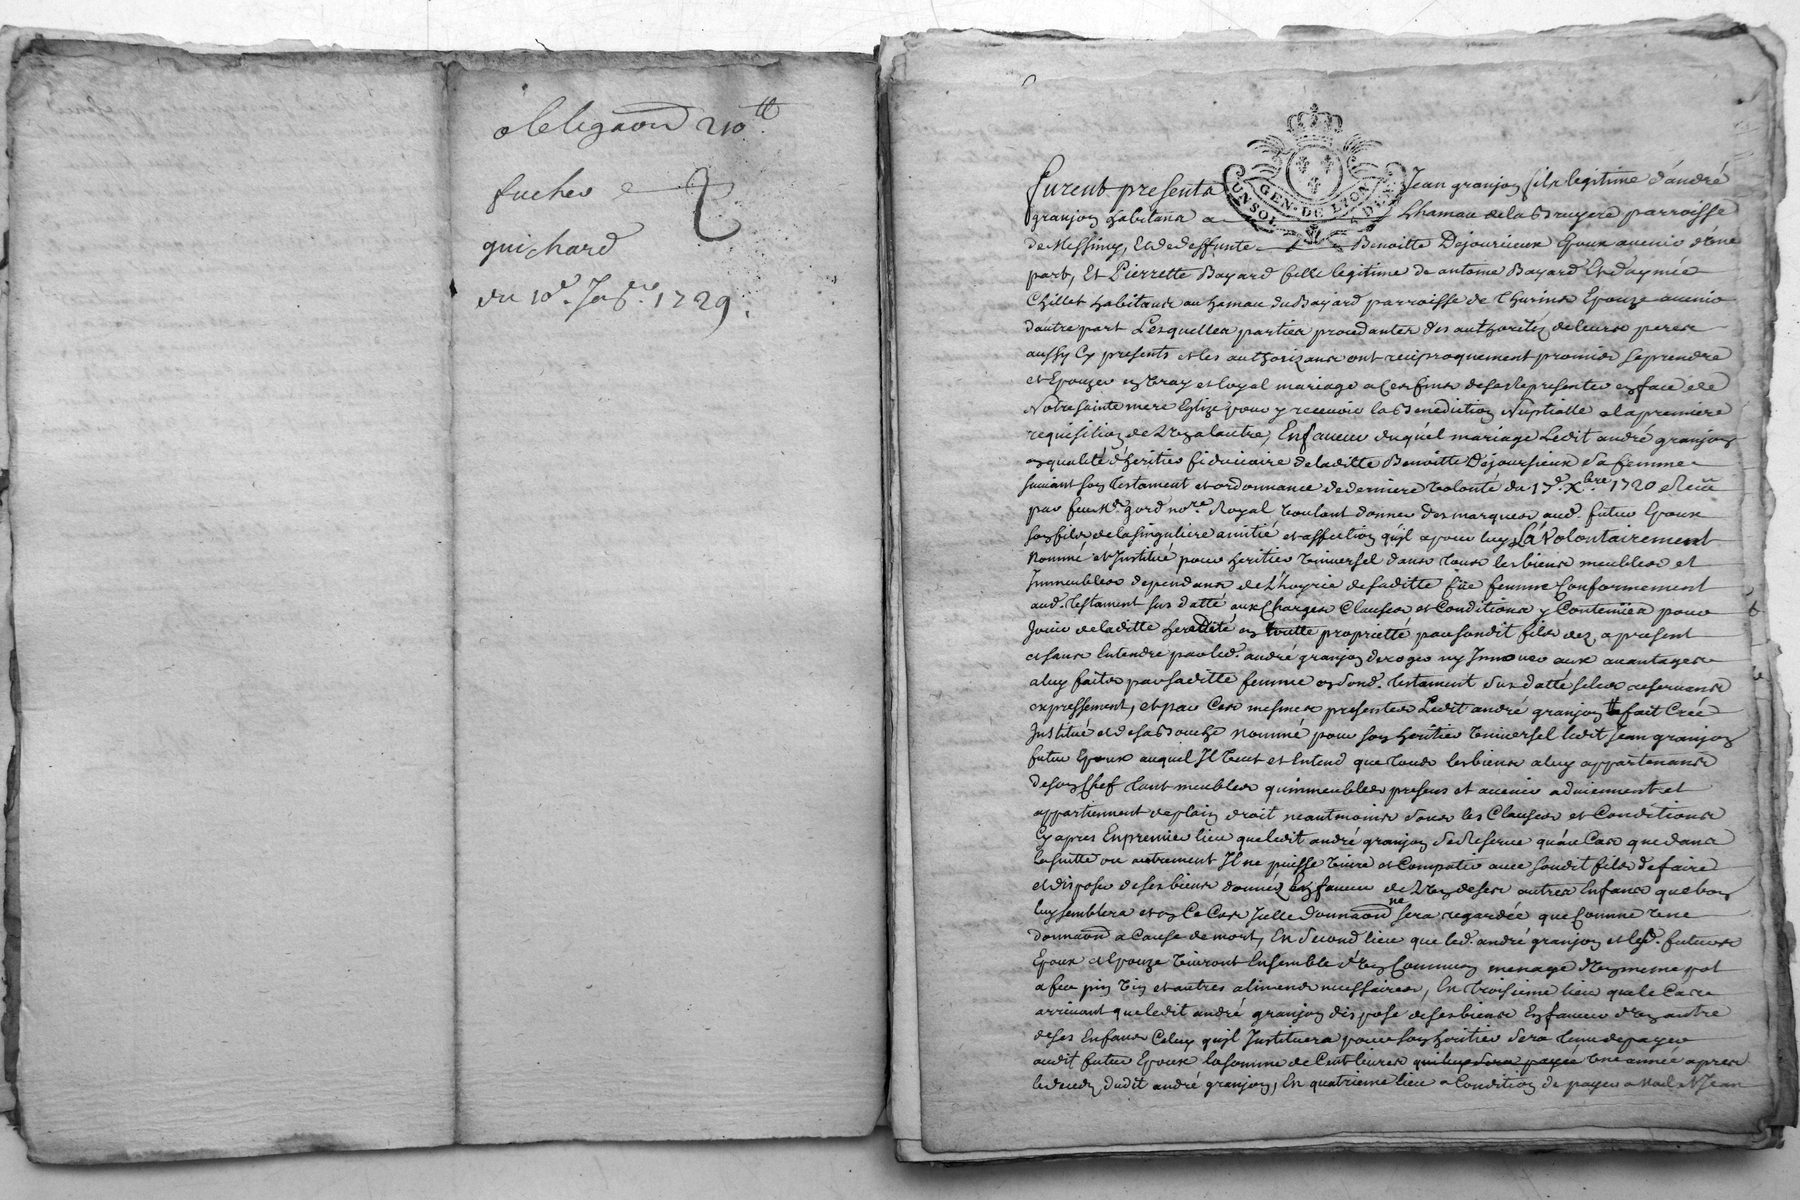 obligaon 210 tt
fucher
guichard
du 10e Jer 1729.
GEN. DE LYON
UN SOL
Furent presents Jean granjon fils legitime d'andré
granjon habitans a L'hameau de la Bruyere parroisse
de Messimy, et de deffunte Benoitte Dejoursieux Epoux avenir d'une
part, Et Pierrette Bayard fille legitime de antoine Bayard Et d'aymée
Chillet habitans au hameau du Bayard parroisse de Thurins Epouze avenir
d'autre part Lesquelles parties procedantes des authoritéz de leurs peres
aussy Cy presents et les authorizans ont reciproquement promis se prendre
et Epouzer en vray et loyal mariage a Ces fins de se Representer en face de
Notre sainte mere Eglize pour y recevoir la Benediction Nuptialle a la premiere
requisition de L'un a lautre, En faveur duquel mariage Ledit andré granjon
en qualité d'heritier fiduciaire de laditte Benoitte Dejoursieux sa femme
suivant son testament et ordonnance de derniere volonté du 17e Xbre 1720 Receu
par feu Me gord nore Royal voulant donner des marques aud. futur Epoux
son fils de la singuliere amitié et affection qu'jl a pour luy, L'a Volontairement
Nommé et Institué pour heritier Vniversel dans tous les biens meubles et
Immeubles dependans de L'hoyrie de saditte füe femme Conformement
aud. testament sus datté aux Charges Clauses et Conditions y Contenües pour
Jouir de laditte heredité en toutte proprietté par sondit fils dez a present
et sans Entendre par led. andré granjon deroger ny Innover aux avantages
a luy faits par saditte femme en sond. testament sus datté se les reservant
expressement, et par Ces mesmes presentes Ledit andré granjon a fait Creé
Institué et de sa Bouche nommé pour son héritier Vniversel ledit Jean granjon
futur Epoux auquel Il Veut et Entend que tous les biens a luy appartenans
de son Chef tant meubles qu'immeubles presens et avenir adviennent et
appartiennent de plain droit neantmoins sous les Clauses et Conditions
Cy apres En premier lieu que ledit andré granjon se Reserve qu'au Cas que dans
la suitte ou autrement Il ne puisse Vivre et Compatir avec sondit fils de faire
et disposer de ses biens donnéz En faveur de L'un de ses autres Enfans que bon
luy semblera et en Ce Cas Jcelle donnaon ne sera regardée que Comme Vne
donnaon a Cause de mort, En second lieu que led. andré granjon et lesd. futurs
Epoux et Epouze Vivront Ensemble d'un Commun menage d'un meme pot
a feu pin Vin et autres alimens necessaires, En troisieme lieu que le Cas
arrivant que ledit andré granjon dispose de ses biens En faveur d'un autre
de ses Enfans Celuy qu'jl Instituera pour son heritier sera tenu de payer
audit futur Epoux la somme de Cent livres qui luy sera payée Vne année apres
le deces dudit andré granjon, En quatrieme lieu a Condition de payer a Jean